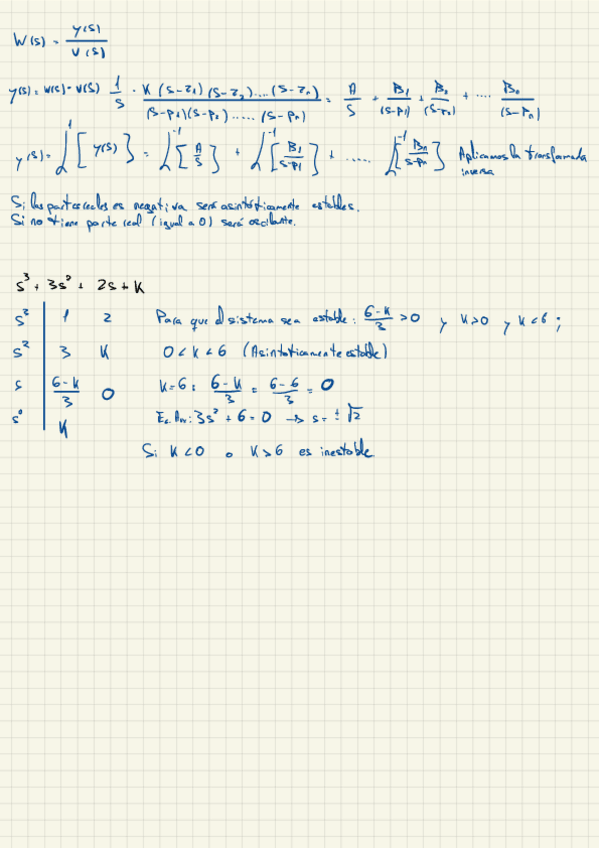 W(s) = y(s) / U(s)
y(s) = W(s) · U(s) 1/s · K (s-z1) (s-z2) .... (s-zn) / (s-p1)(s-p2) ..... (s-pn) = A/s + B1/(s-p1) + B2/(s-p2) + .... Bn/(s-pn)
y(s) = L⁻¹[ y(s) } = L⁻¹[ A/s } + L⁻¹[ B1/s-p1 } + ..... L⁻¹[ Bn/s-pn } Aplicamos la transformada
inversa
Si las partes reales es negativa será asintóticamente estables.
Si no tiene parte real (igual a 0) será oscilante.
s³ + 3s² + 2s + K
s³ 1 2 Para que el sistema sea estable: 6-K/3 > 0 y K>0 y K<6 ;
s² 3 K 0 < K < 6 (Asintóticamente estable)
s 6-K/3 0 K=6: 6-K/3 = 6-6/3 = 0
s⁰ K 3s² + 6 = 0 → s = ± √2
Si K < 0 o K > 6 es inestable